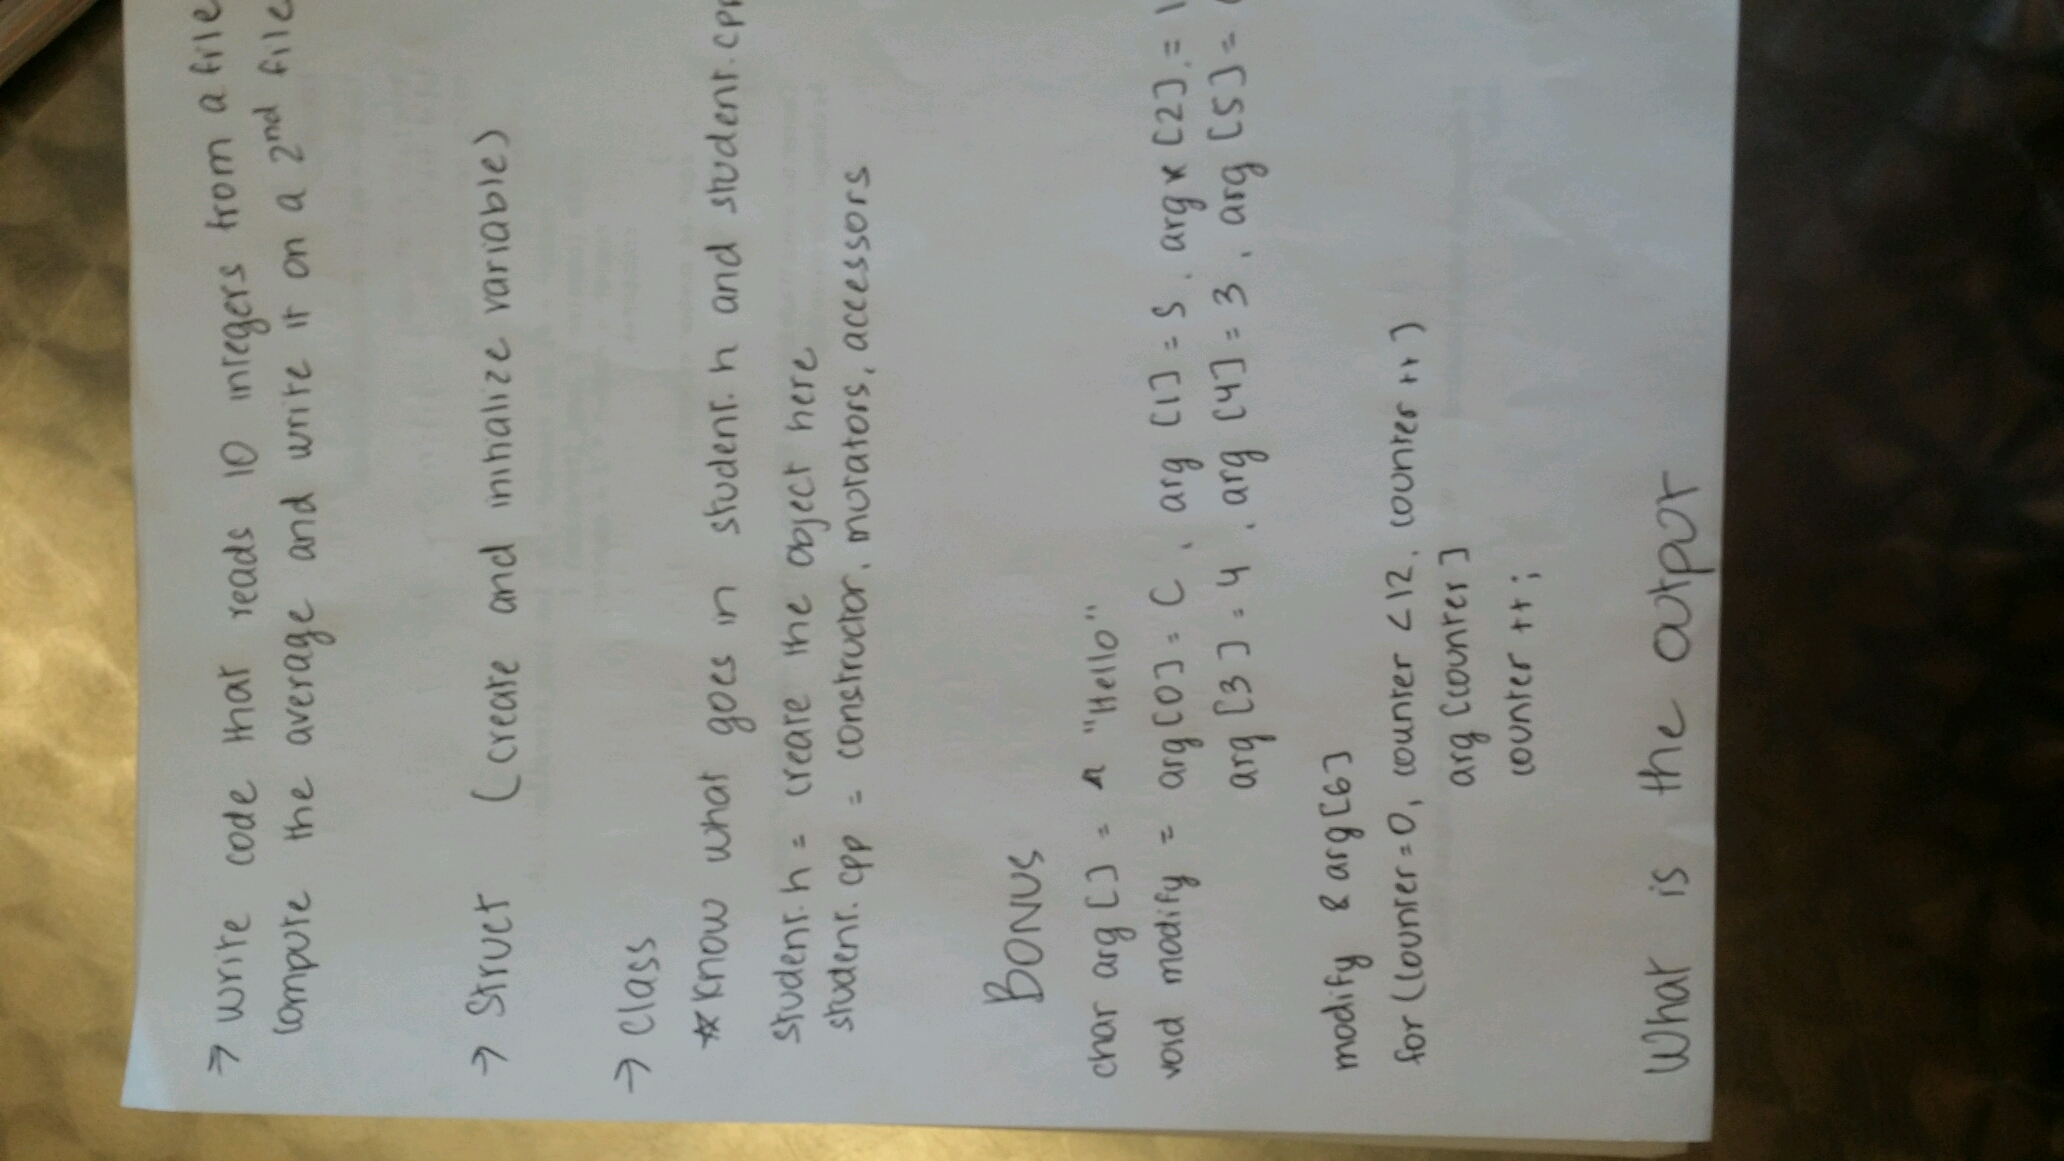 → write code that reads 10 integers from a file
compute the average and write it on a 2nd file
→ Struct (create and initialize variable)
→ class
☆ Know what goes in student.h and student.cpp
student.h = create the object here
student.cpp = constructor, mutators, accessors
BONUS
char arg [] = "Hello"
void modify = arg[0] = C, arg [1] = S, arg [2] = 1
arg [3] = 4, arg [4] = 3, arg [5] =
modify & arg[6]
for (counter=0, counter <12, counter ++)
arg [counter]
counter ++;
What is the output